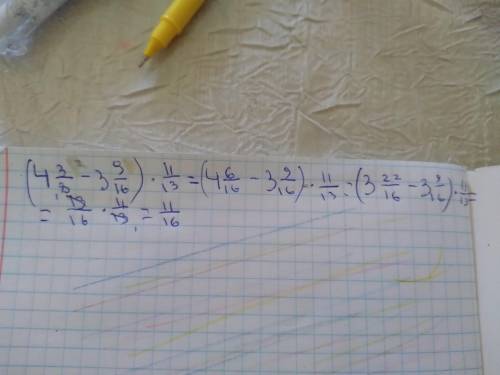 (4 3/8 - 3 9/16) · 11/13 = (4 6/16 - 3 9/16) · 11/13 = (3 22/16 - 3 9/16) · 11/13 =
= 13/16 · 11/13 = 11/16